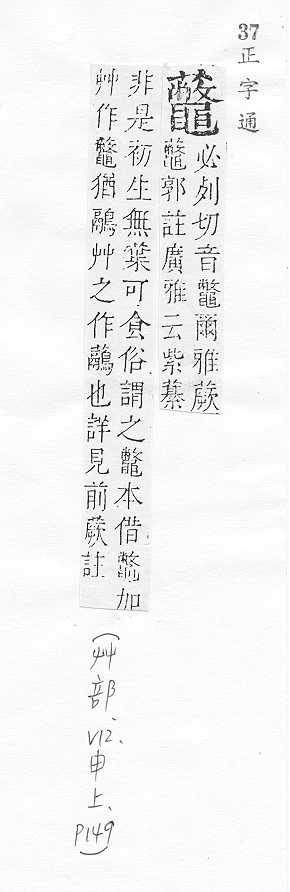 37 正字通
虌
必列切音鼈爾雅蕨
虌郭註廣雅云紫藄
非是初生無葉可食俗謂之鼈本借鼈加
艸作虌猶鷊艸之作虉也詳見前蕨註
(艸部 V12、申上、P149)